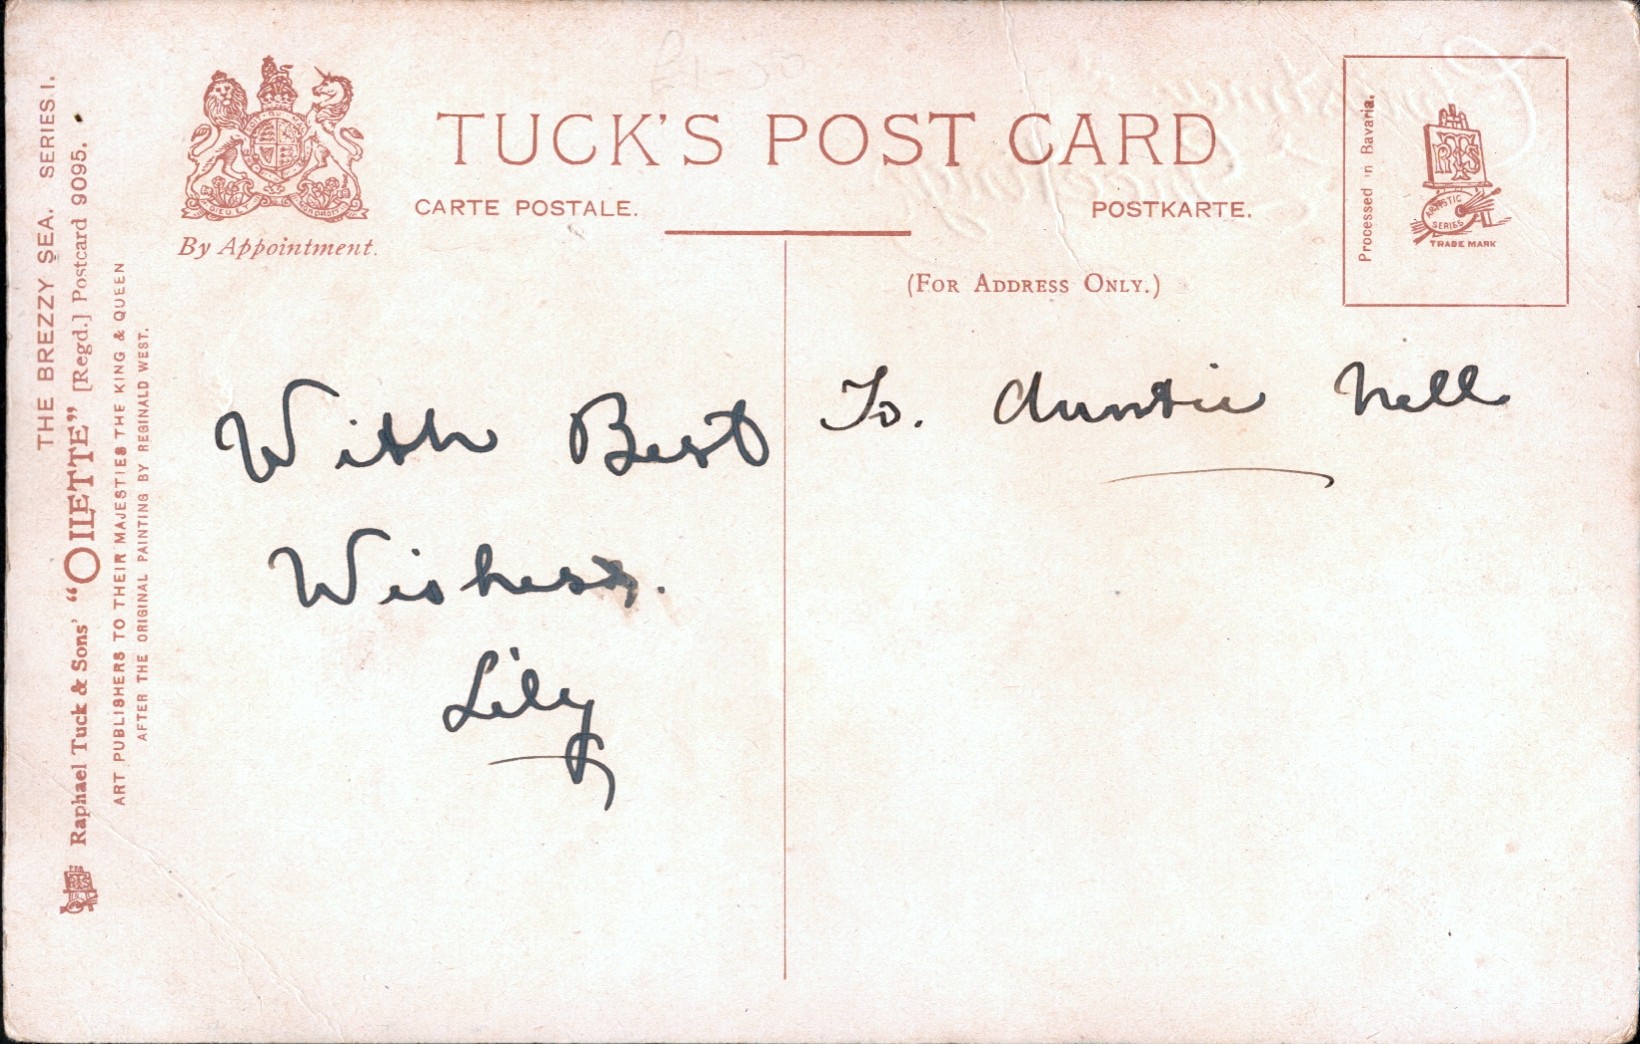 THE BREZZY SEA. SERIES I.
Raphael Tuck & Sons' "OILETTE" [Regd.] Postcard 9095.
ART PUBLISHERS TO THEIR MAJESTIES THE KING & QUEEN
AFTER THE ORIGINAL PAINTING BY REGINALD WEST.
£1-50
TUCK'S POST CARD
CARTE POSTALE.
POSTKARTE.
By Appointment.
(FOR ADDRESS ONLY.)
Processed in Bavaria.
ARTISTIC
SERIES
TRADE MARK
With Best
Wishes.
Lily
To. Auntie Nell